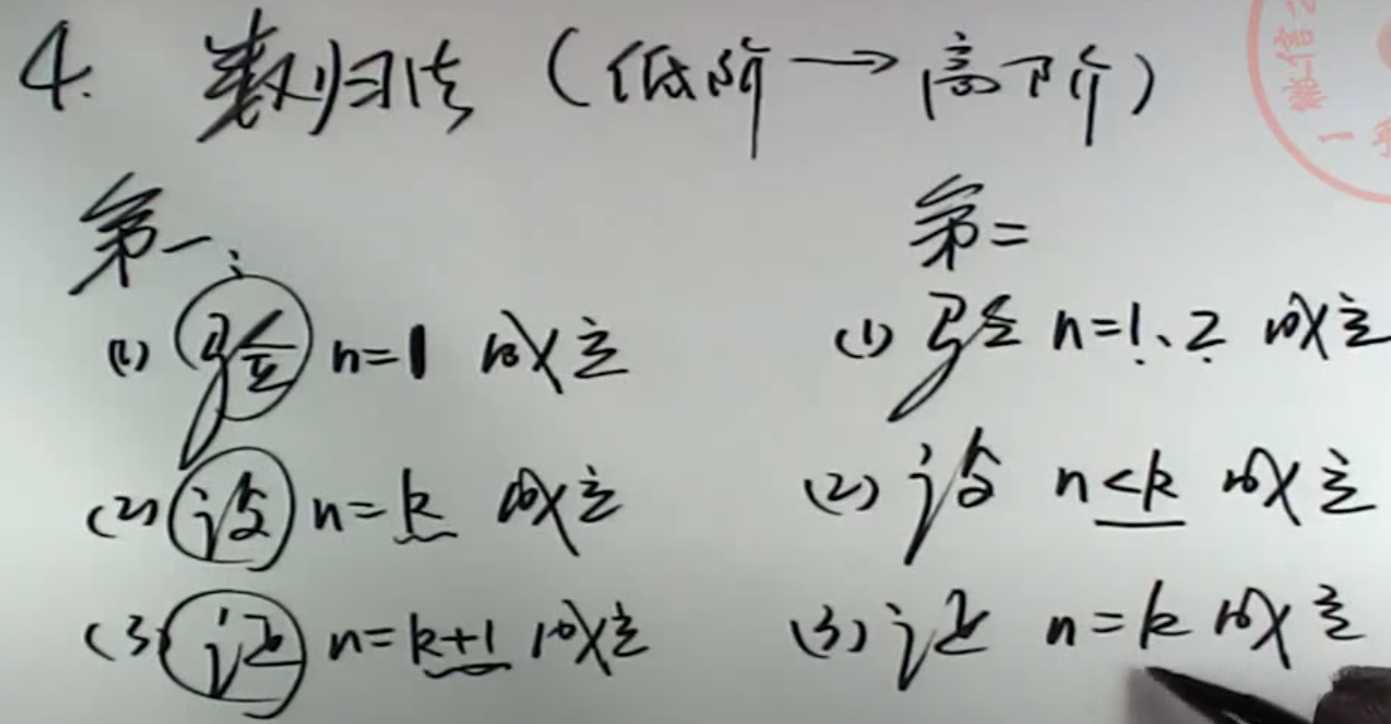 4. 数归法（低阶→高阶）
第一：
(1) 验 n=1 成立
(2) 设 n=k 成立
(3) 证 n=k+1 成立
第二
(1) 验 n=1、2 成立
(2) 设 n<k 成立
(3) 证 n=k 成立